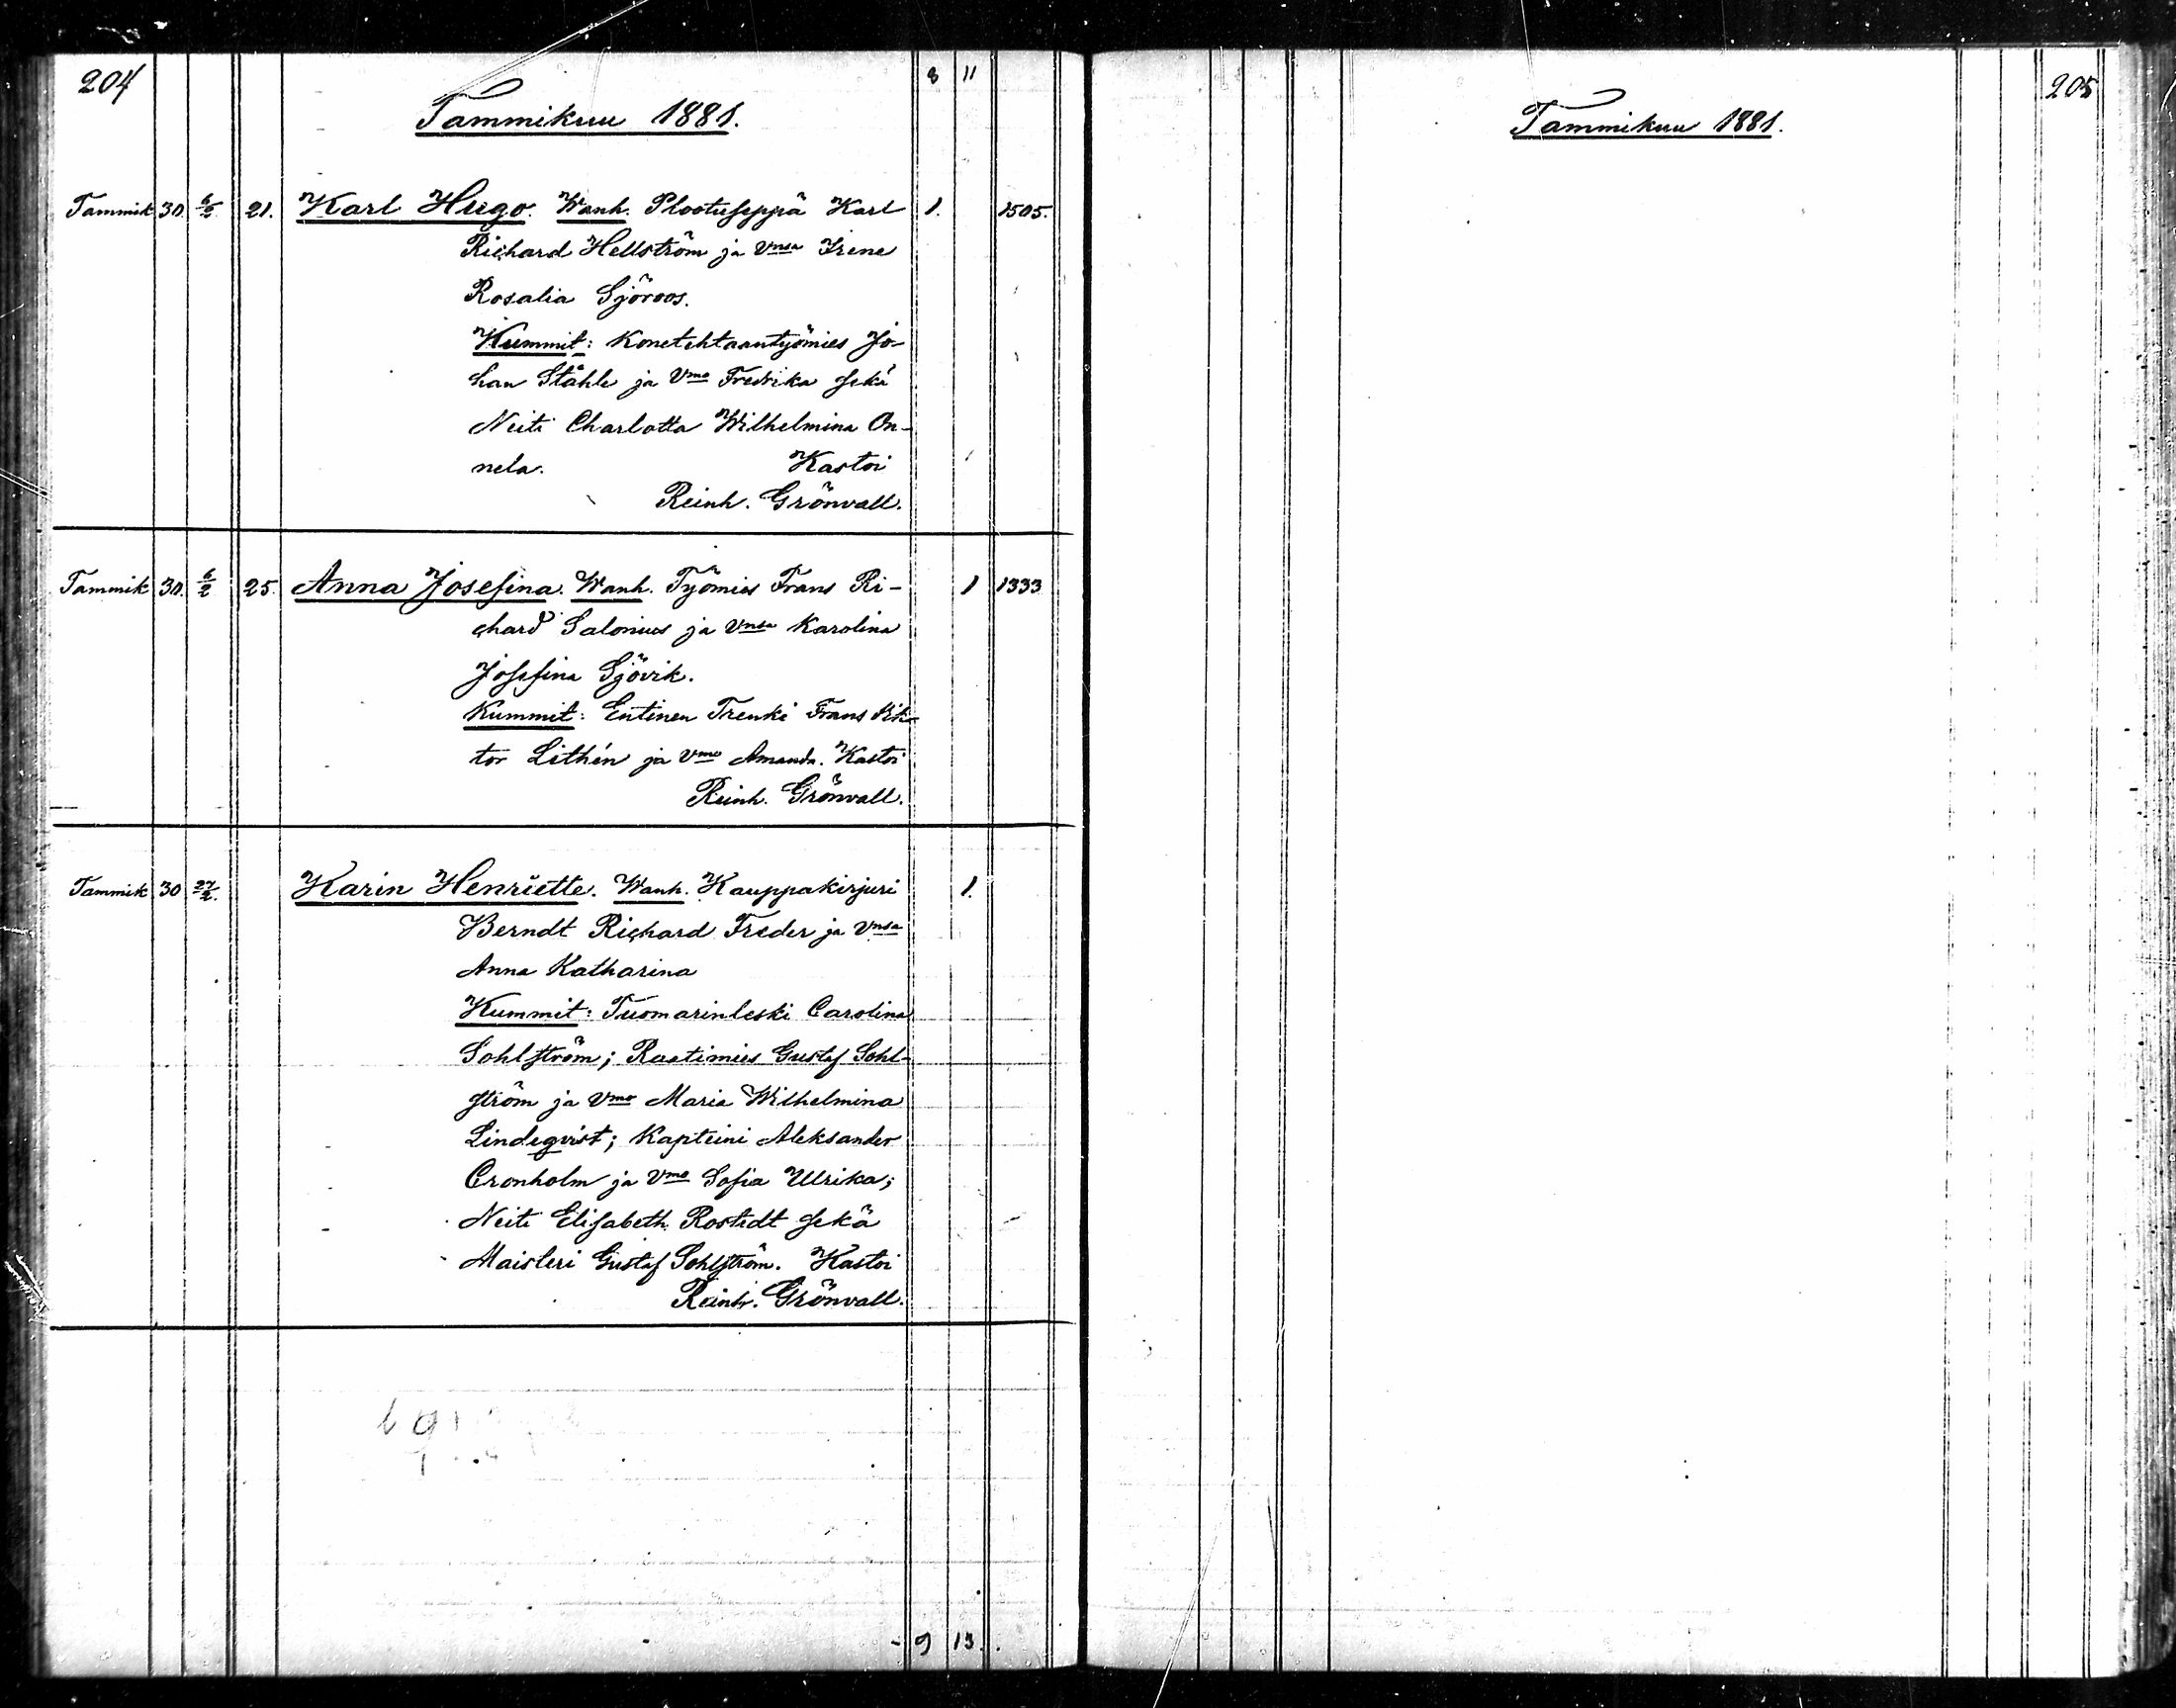 204
8 11
Tammikuu 1881.
Tammik 30. 6/2. 21. Karl Hugo. Wanh. Plootuseppä Karl 1. 1505.
Richard Hellström ja Vnsa Irene
Rosalia Sjöroos.
Kummit: Konetehtaantyömies Jo-
han Ståhle ja Vmo Fredrika sekä
Neiti Charlotta Wilhelmina On-
nela. Kastoi
Reinh. Grönvall.
Tammik 30. 6/2 25. Anna Josefina. Wanh. Työmies Frans Ri- 1 1333
chard Salonius ja Vnsa Karolina
Josefina Sjövik.
Kummit: Entinen Trenki Frans
tor Lithén ja Vmo Amanda. Kastoi
Reinh. Grönvall.
Tammik 30 27/2. Karin Henriette. Wanh. Kauppakirjuri 1.
Berndt Richard Freder ja Vnsa
Anna Katharina
Kummit: Tuomarinleski Carolina
Sohlström; Raatimies Gustaf Sohl-
ström ja Vmo Maria Wilhelmina
Lindeqvist; Kapteini Aleksander
Cronholm ja Vmo Sofia Ulrika;
Neiti Elisabeth Rostedt sekä
Maisteri Gustaf Sohlström. Kastoi
Reinh. Grönvall.
9 13.
205
Tammikuu 1881.